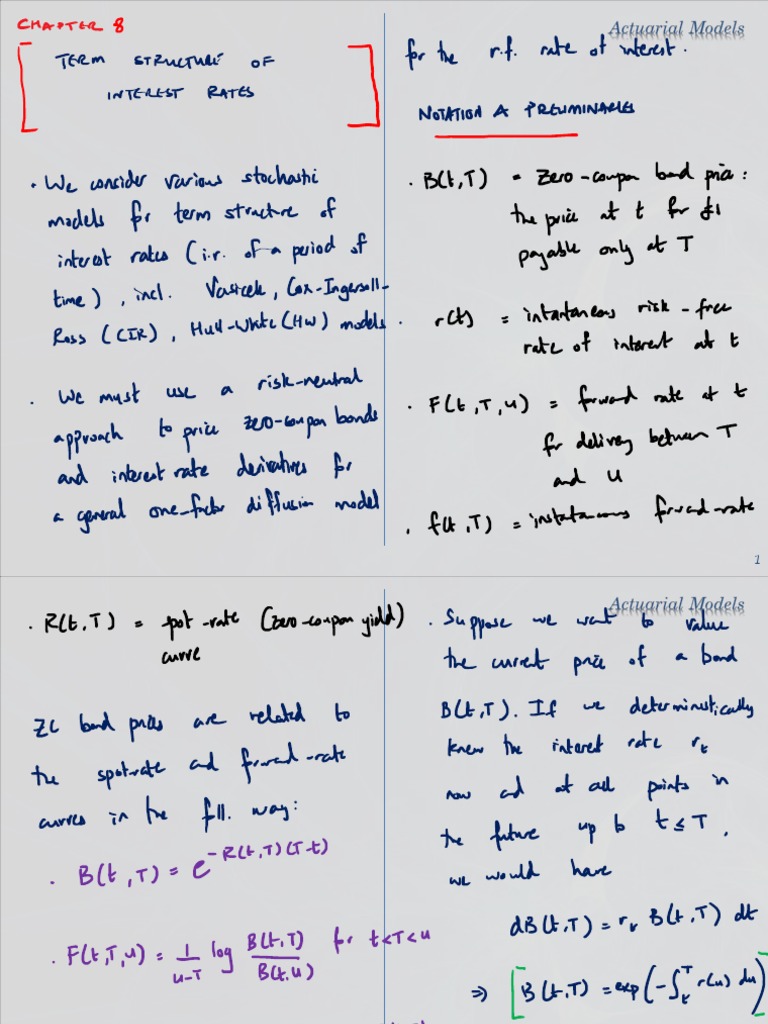 CHAPTER 8
TERM STRUCTURE OF
INTEREST RATES
• We consider various stochastic
models for term structure of
interest rates (i.r. of a period of
time), incl. Vasicek, Cox-Ingersoll-
Ross (CIR), Hull-White (HW) models.
• We must use a risk-neutral
approach to price zero-coupon bonds
and interest rate derivatives for
a general one-factor diffusion model
Actuarial Models
for the r.f. rate of interest.
NOTATION & PRELIMINARIES
• B(t,T) = Zero-coupon bond price:
the price at t for £1
payable only at T
• r(t) = intantaneous risk-free
rate of interest at t
• F(t,T,u) = forward rate at t
for delivery between T
and u
• f(t,T) = instataneous forward-rate
1
• R(t,T) = spot-rate (zero-coupon yield)
curve
ZC bond prices are related to
the spotrate and forward-rate
curves in the foll. way:
• B(t,T) = e^{-R(t,T)(T-t)}
• F(t,T,u) = 1/(u-T) log B(t,T)/B(t,u) for t<T<u
Actuarial Models
• Suppose we want to value
the current price of a bond
B(t,T). If we deterministically
knew the interest rate r_t
now and at all points in
the future up to t≤T,
we would have
dB(t,T) = r_t B(t,T) dt
⇒ [B(t,T) = exp(-∫_t^T r(u) du)]